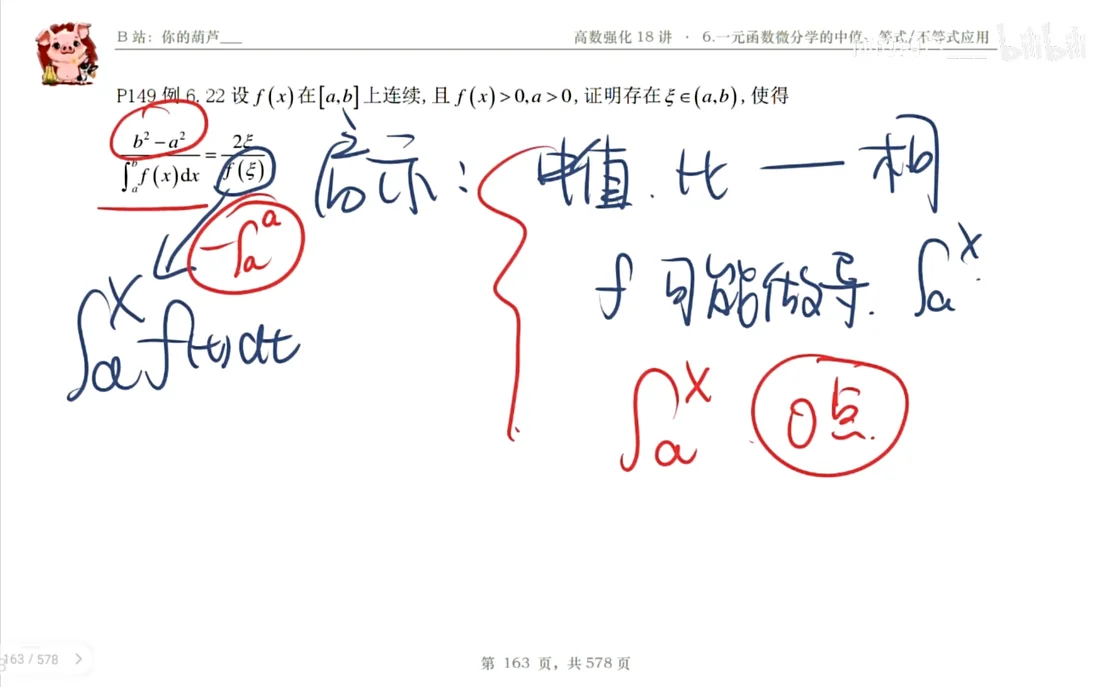 B 站：你的葫芦___
高数强化 18 讲 · 6.一元函数微分学的中值、等式/不等式应用
bilibili
P149 例 6.22 设 f(x) 在 [a,b] 上连续，且 f(x)>0,a>0，证明存在 ξ∈(a,b)，使得
(b²−a²)/(∫ₐᵇ f(x)dx) = 2ξ/f(ξ)
启示：
中值.比一相
−∫ₐᵃ
f 可能做导. ∫ₐˣ
∫ₐˣ f(t)dt
∫ₐˣ 0点.
163 / 578 >
第 163 页，共 578 页